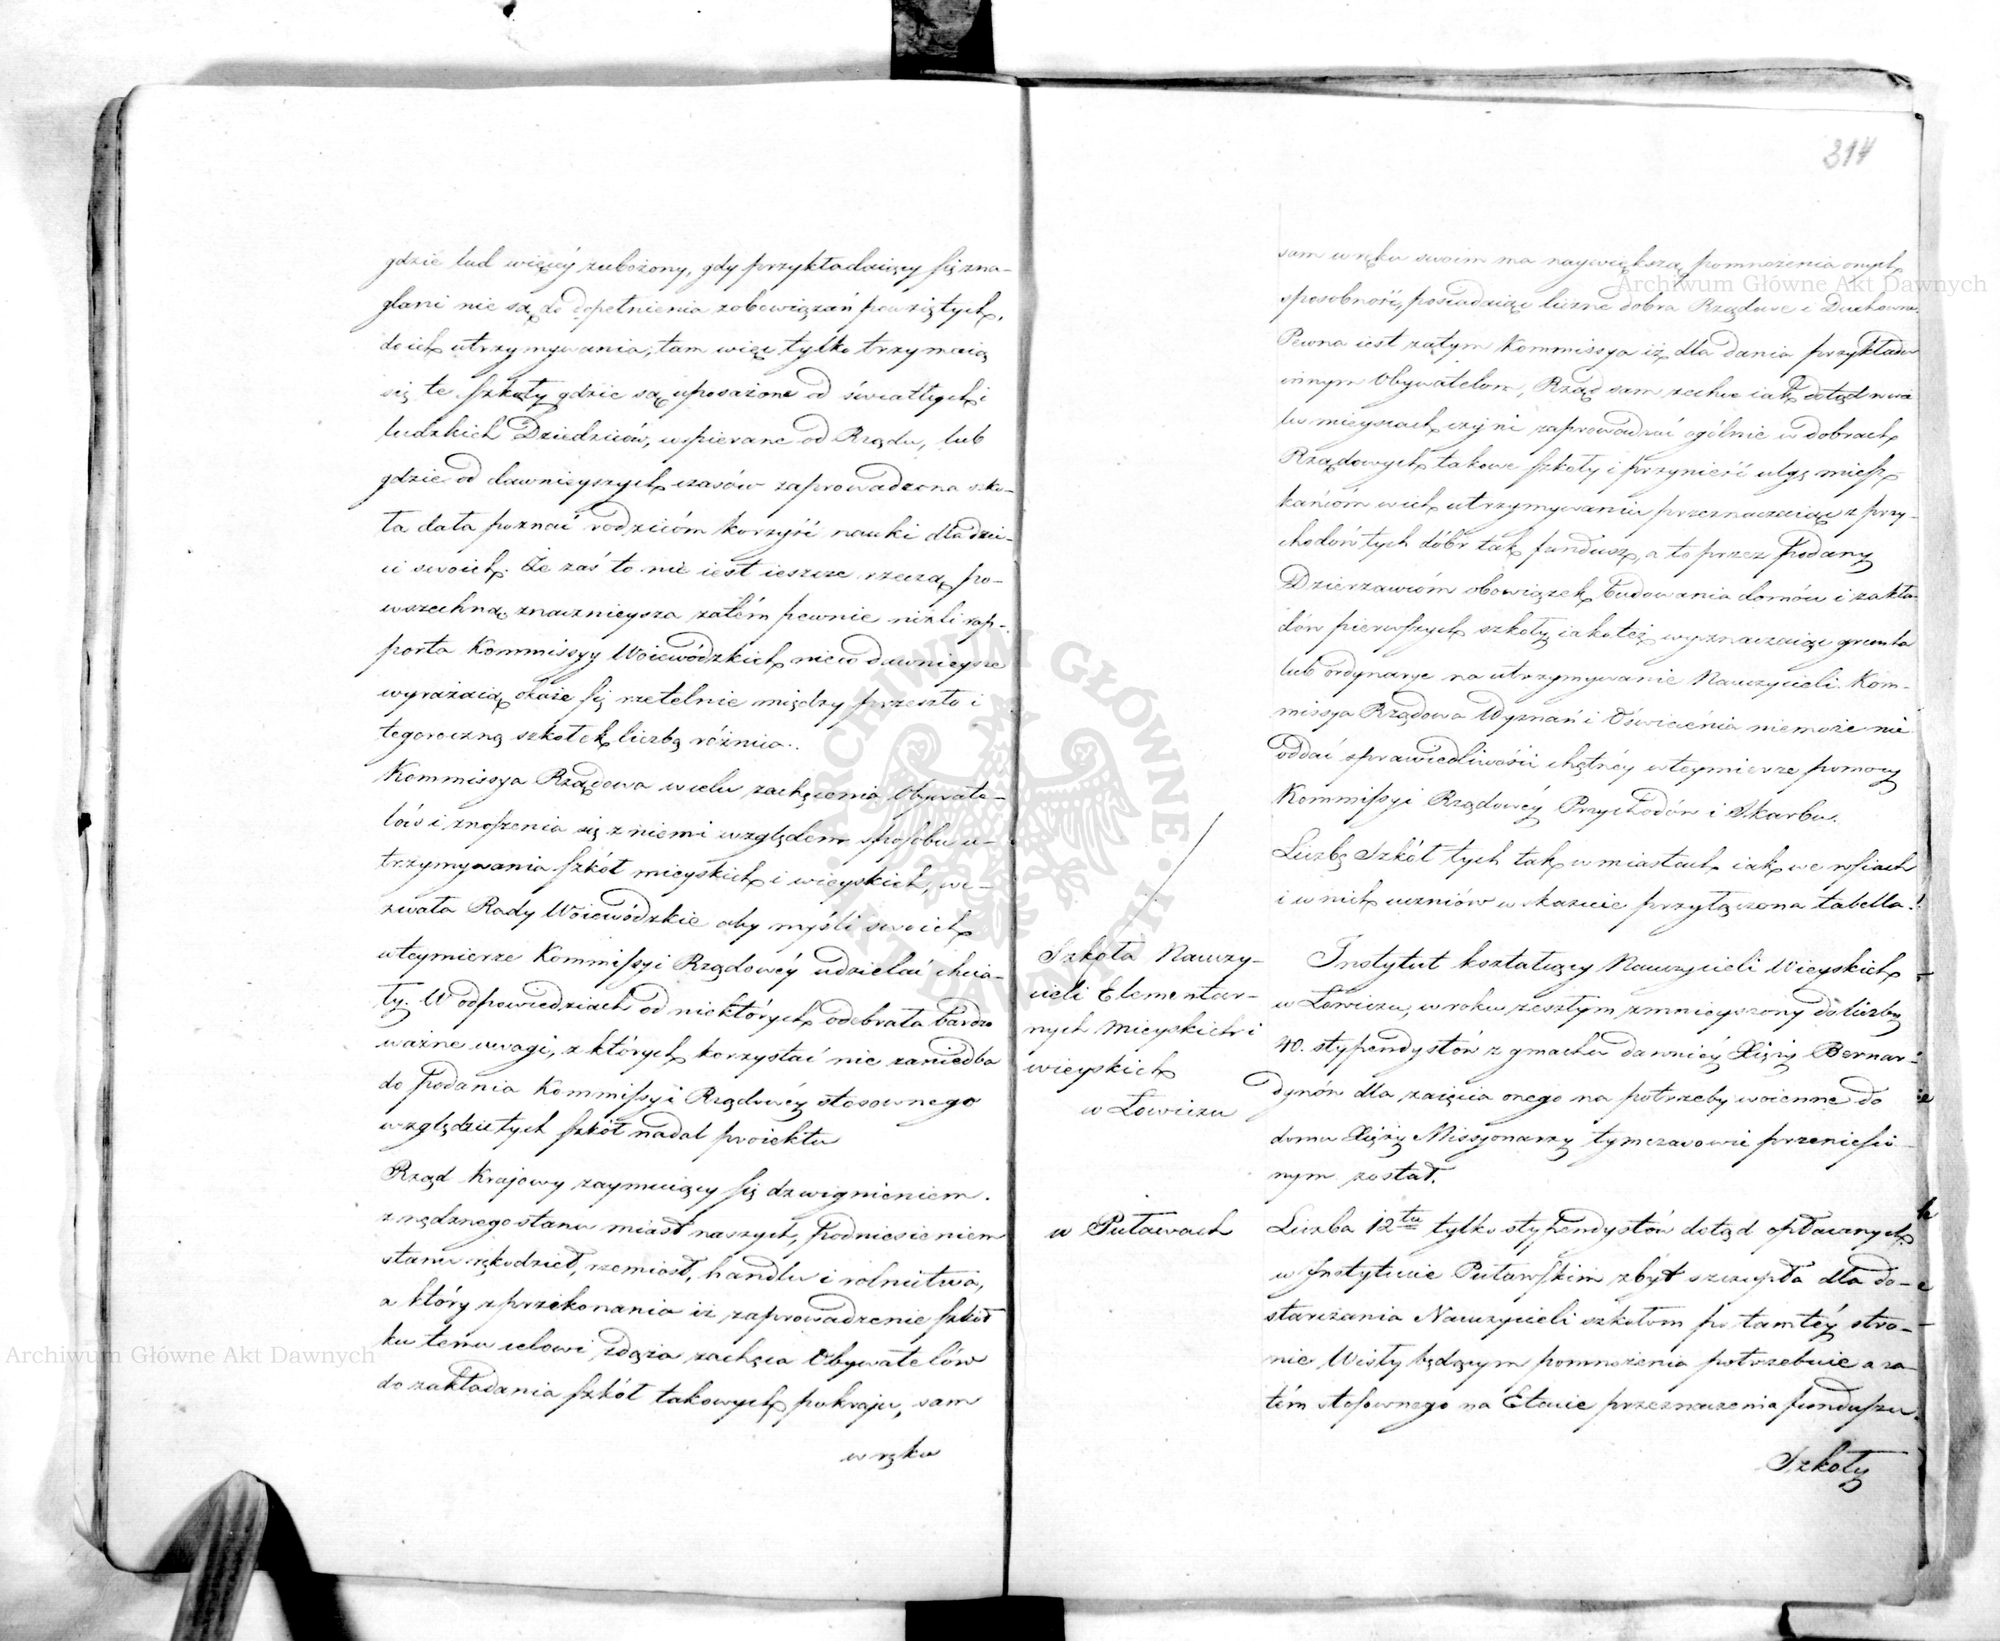 gdzie lud więcéy zubożony, gdy przykładaiący się zna-
glani nie są do dopełnienia zobowiązań powziętych,
do ich utrzymywania; tam więc tylko trzymaią
się te szkoły gdzie są uposażone od światłych i
ludzkich Dziedziców, wspierane od Rządu, lub
gdzie od dawnieyszych czasów zaprowadzona szko-
ła dała poznać rodzicóm korzyść nauki dla dzie-
ci swoich. Że zaś to nie iest ieszcze rzeczą po-
wszechną, znacznieysza zatém pewnie niżli rap-
porta Kommissyy Woiewódzkich nieco dawnieysze
wyrażaią okaże się rzetelnie między przeszłą i
tegoroczną szkołek liczbą różnica.
Kommissya Rządowa w celu zachęcenia Obywate-
lów i znoszenia się z niemi względem sposobu u-
trzymywania szkół mieyskich i wieyskich, we-
zwała Rady Woiewódzkie aby myśli swoich
w teymierze Kommissyi Rządowéy udzielać chcia-
ły. W odpowiedziach od niektórych odebrała bardzo
ważne uwagi, z których korzystać nie zaniedba
do podania Kommissyi Rządowéy stosownego
względem tych szkół nadal proiektu
Rząd Krajowy zaymuiący się dzwignieniem
z nędznego stanu miast naszych, podniesieniem
stanu rękodzieł, rzemiosł, handlu i rolnictwa,
a który z przekonania iż zaprowadzenie szkół
ku temu celowi zdąża zachęca Obywatelów
do zakładania szkół takowych po kraju, sam
w ręku
314
sam w ręku swoim ma naywiększą pomnożenia onych
sposobność, posiadaiąc liczne dobra Rządowe i Duchowne.
Pewna iest zatym Kommissya iż dla dania przykładu
innym Obywatelom, Rząd sam zechce iak dotąd w wie
lu mieyscach czyni zaprowadzać ogólnie w dobrach
Rządowych takowe szkoły i przynieść ulgę miesz
kańcóm w ich utrzymywaniu przeznaczaiąc z przy-
chodów tych dóbr tak fundusz, a to przez podany
Dzierzawcóm obowiązek budowania domów i zakła-
dów pierwszych szkoły iakoteż wyznaczaiąc grunta
lub ordynarye na utrzymywanie Nauczycieli. Kom-
missya Rządowa Wyznań i Oświecenia niemoże nie
oddać sprawiedliwości chętnéy w teymierze pomocy
Kommissyi Rządowéy Przychodów i Skarbu.
Liczbę Szkół tych tak w miastach iak we wsiach
i w nich uczniów wskazuie przyłączona tabella.
Szkoła Nauczy-
cieli Elementar-
nych Mieyskich i
wieyskich
w Łowiczu
Instytut kształcący Nauczycieli Wieyskich
w Łowiczu, w roku zeszłym zmnieyszony do liczby
40. stypendystów z gmachu dawniéy Xięży Bernar-
dynów dla zaięcia onego na potrzeby woienne do
domu Xięży Missyonarzy tymczasowie przeniesio-
nym został.
w Puławach
Liczba 12tu tylko stypendystów dotąd opłacanych
w Instytucie Puławskim zbyt szczupła dla do-
starczania Nauczycieli szkołom po tamtéy stro-
nie Wisły będącym pomnożenia potrzebuie a za-
tém stosownego na Etacie przeznaczenia funduszu.
Szkoły
Archiwum Główne Akt Dawnych
Archiwum Główne Akt Dawnych
ARCHIWUM GŁÓWNE AKT DAWNYCH